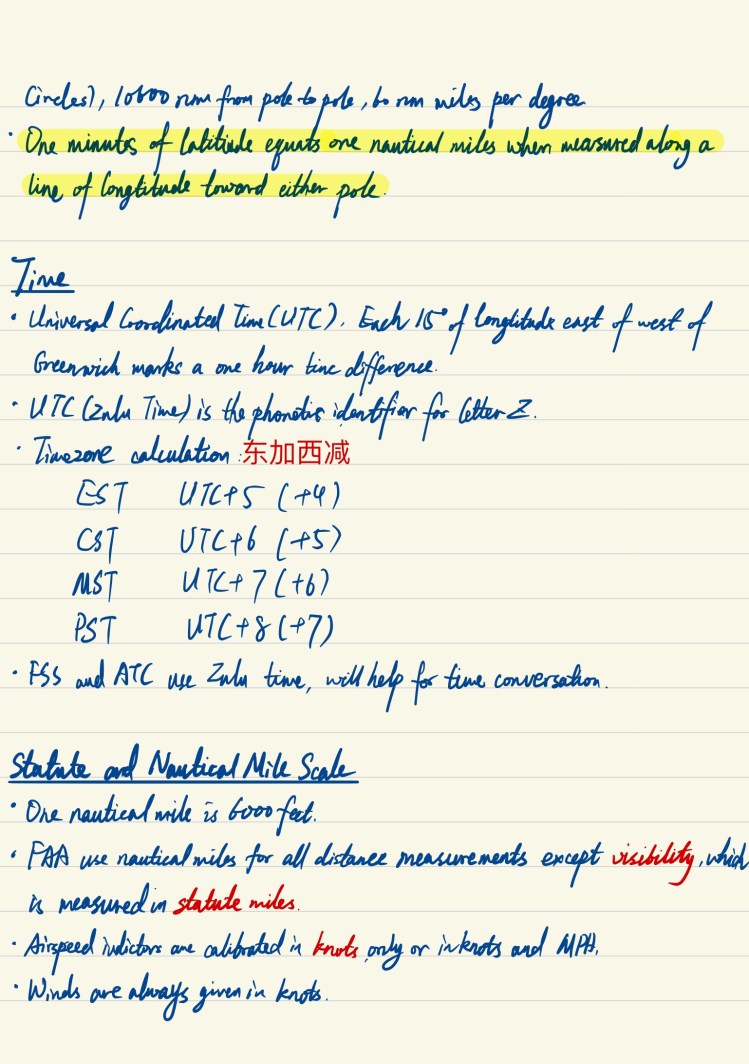 Circles), 10800 nm from pole to pole, 60 nm miles per degree
· One minutes of latitude equals one nautical miles when measured along a
line of longtitude toward either pole.
Time
· Universal Coordinated Time (UTC). Each 15° of longtitude east of west of
Greenwich marks a one hour time difference.
· UTC (Zulu Time) is the phonetis identifier for letter Z.
· Timezone calculation: 东加西减
EST UTC+5 (+4)
CST UTC+6 (+5)
MST UTC+7 (+6)
PST UTC+8 (+7)
· FSS and ATC use Zulu time, will help for time conversation.
Statute and Nautical Mile Scale
· One nautical mile is 6000 feet.
· FAA use nautical miles for all distance measurements except visibility, which
is measured in statute miles.
· Airspeed indictors are calibrated in knots only or in knots and MPH.
· Winds are always given in knots.